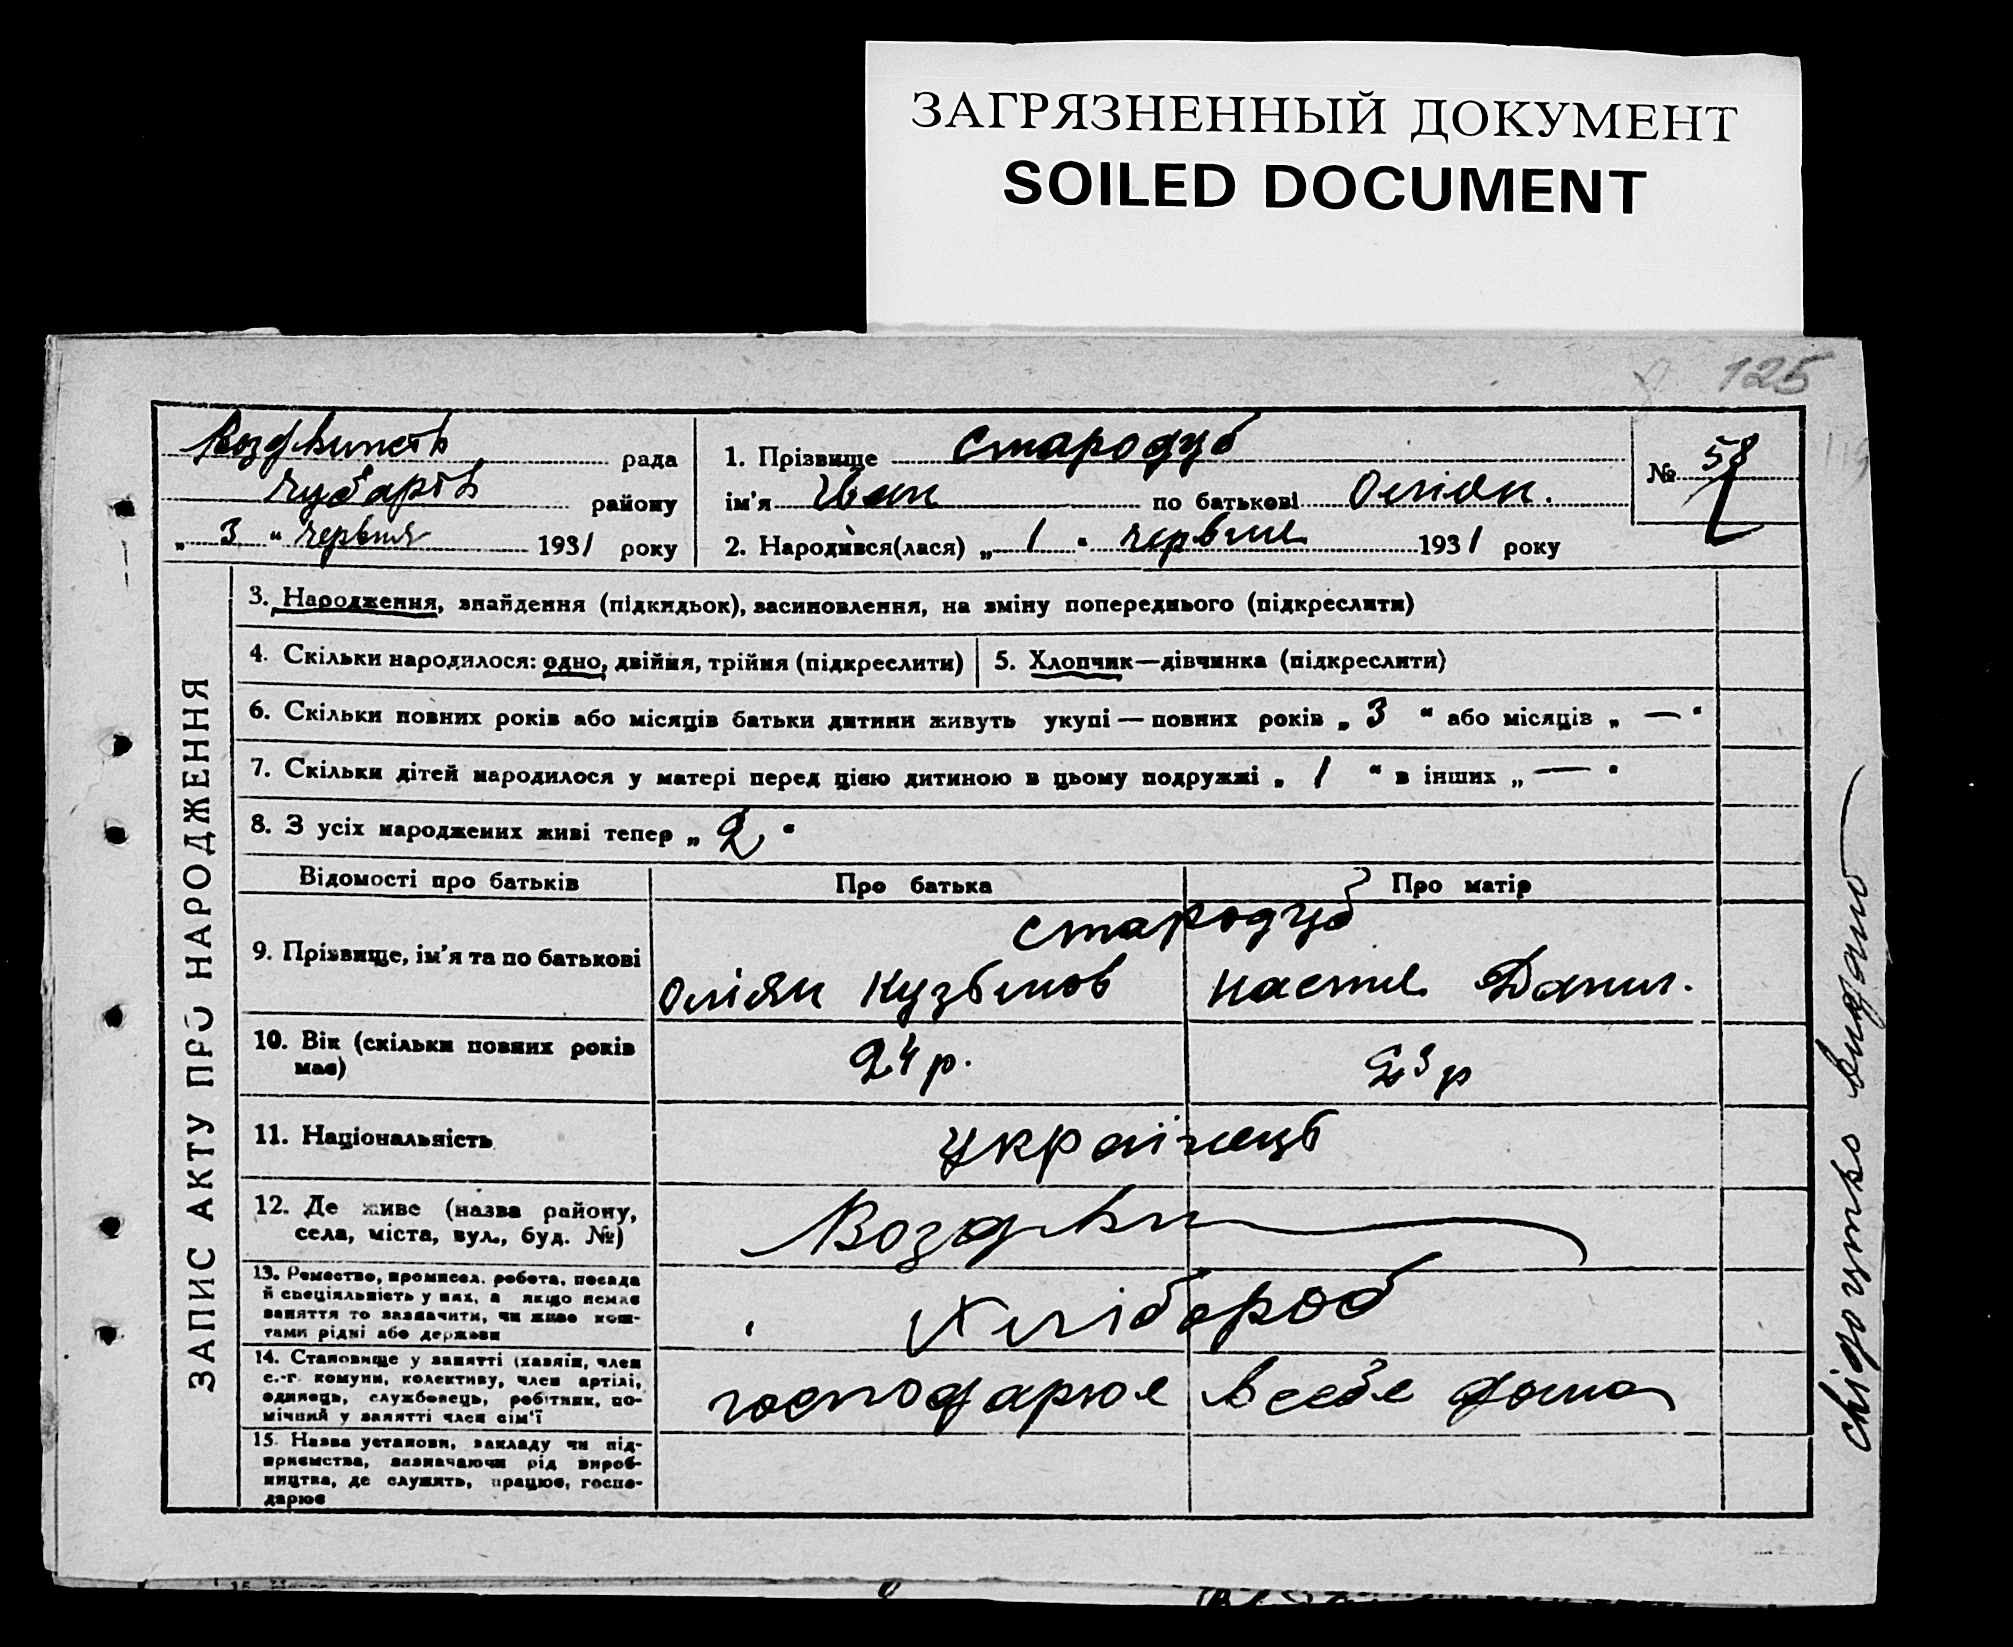 ЗАГРЯЗНЕННЫЙ ДОКУМЕНТ
SOILED DOCUMENT
125
рада
району
„ 3 “ червня 1931 року
1. Прізвище Стародуб
ім'я Іван по батькові
2. Народився(лася) „ 1 “ червня 1931 року
№ 58
ЗАПИС АКТУ ПРО НАРОДЖЕННЯ
3. Народження, знайдення (підкидьок), засиновлення, на зміну попереднього (підкреслити)
4. Скільки народилося: одно, двійня, трійня (підкреслити)
5. Хлопчик—дівчинка (підкреслити)
6. Скільки повних років або місяців батьки дитини живуть укупі — повних років „ 3 “ або місяців „ — “
7. Скільки дітей народилося у матері перед цією дитиною в цьому подружжі „ 1 “ в інших „ — “
8. З усіх народжених живі тепер „ 2 “
Відомості про батьків
Про батька
Про матір
9. Прізвище, ім'я та по батькові
Стародуб
Настя Данил.
10. Вік (скільки повних років
має)
24 р.
23 р
11. Національність
українець
12. Де живе (назва району,
села, міста, вул., буд. №)
Воздви
13. Ремество, промисел, робота, посада
й спеціяльність у них, а якщо немає
заняття то зазначити, чи живе кош-
тами рідні або держави
Хлібороб
14. Становище у занятті (хазяїн, член
с.-г. комуни, колективу, член артілі,
одинець, службовець, робітник, по-
мічний у занятті член сім'ї
господарює в себе дома
15. Назва установи, закладу чи під-
приємства, зазначаючи рід вироб-
ництва, де служить, працює, госпо-
дарює
видано